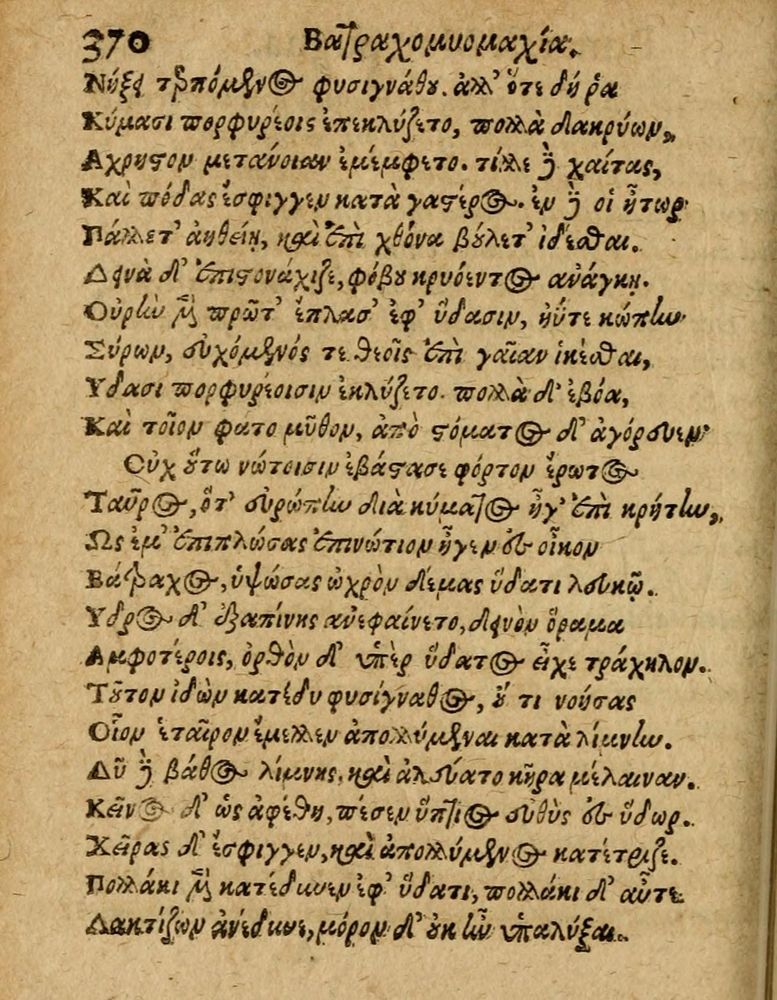 370 Βατραχομυομαχία.
Νήξει τερπόμενος φυσιγνάθου. ἀλλ' ὅτε δή ῥα
Κύμασι πορφυρέοις ἐπεκλύζετο, πολλὰ δακρύων,
Αχρηστον μετάνοιαν ἐμέμφετο. τίλλε δὲ χαίτας,
Καὶ πόδας ἔσφιγγεν κατὰ γαστέρος. ἐν δὲ οἱ ἦτορ
Πάλλετ' ἀηθείῃ, καὶ ἐπὶ χθόνα βούλετ' ἱδέσθαι.
Δεινὰ δ' ἐπιστονάχιζε, φόβου κρυόεντος ἀνάγκῃ.
Οὐρὴν μὲν πρῶτ' ἔπλασ' ἐφ' ὕδασιν, ἠΰτε κώπην
Σύρων, εὐχόμενός τε θεοῖς ἐπὶ γαῖαν ἱκέσθαι,
Υδασι πορφυρέοισιν ἐκλύζετο. πολλὰ δ' ἐβόα,
Καὶ τοῖον φάτο μῦθον, ἀπὸ στόματος δ' ἀγόρευεν
Οὐχ οὕτω νώτοισιν ἐβάστασε φόρτον ἔρωτος
Ταῦρος, ὅτ' εὐρώπην διὰ κύματος ἦγ' ἐπὶ κρήτην,
Ως ἐμ' ἐπιπλώσας ἐπινώτιον ἦγεν ἐς οἶκον
Βάτραχος, ὑψώσας ὠχρὸν δέμας ὕδατι λευκῷ.
Υδρος δ' ἐξαπίνης ἀνεφαίνετο, δεινὸν ὅραμα
Αμφοτέροις, ὀρθὸν δ' ὑπὲρ ὕδατος εἶχε τράχηλον.
Τοῦτον ἰδὼν κατέδυ φυσίγναθος, οὔ τι νοήσας
Οἷον ἑταῖρον ἔμελλεν ἀπολλύμεναι κατὰ λίμνην.
Δῦ δὲ βάθος λίμνης, καὶ ἀλεύατο κῆρα μέλαιναν.
Κεῖνος δ' ὡς ἀφέθη, πέσεν ὕπτιος εὐθὺς ἐς ὕδωρ.
Χεῖρας δ' ἔσφιγγεν, καὶ ἀπολλύμενος κατέτριζε.
Πολλάκι μὲν κατέδυνεν ἐφ' ὕδατι, πολλάκι δ' αὖτε
Λακτίζων ἀνέδυνε, μόρον δ' οὐκ ἦν ὑπαλύξαι.